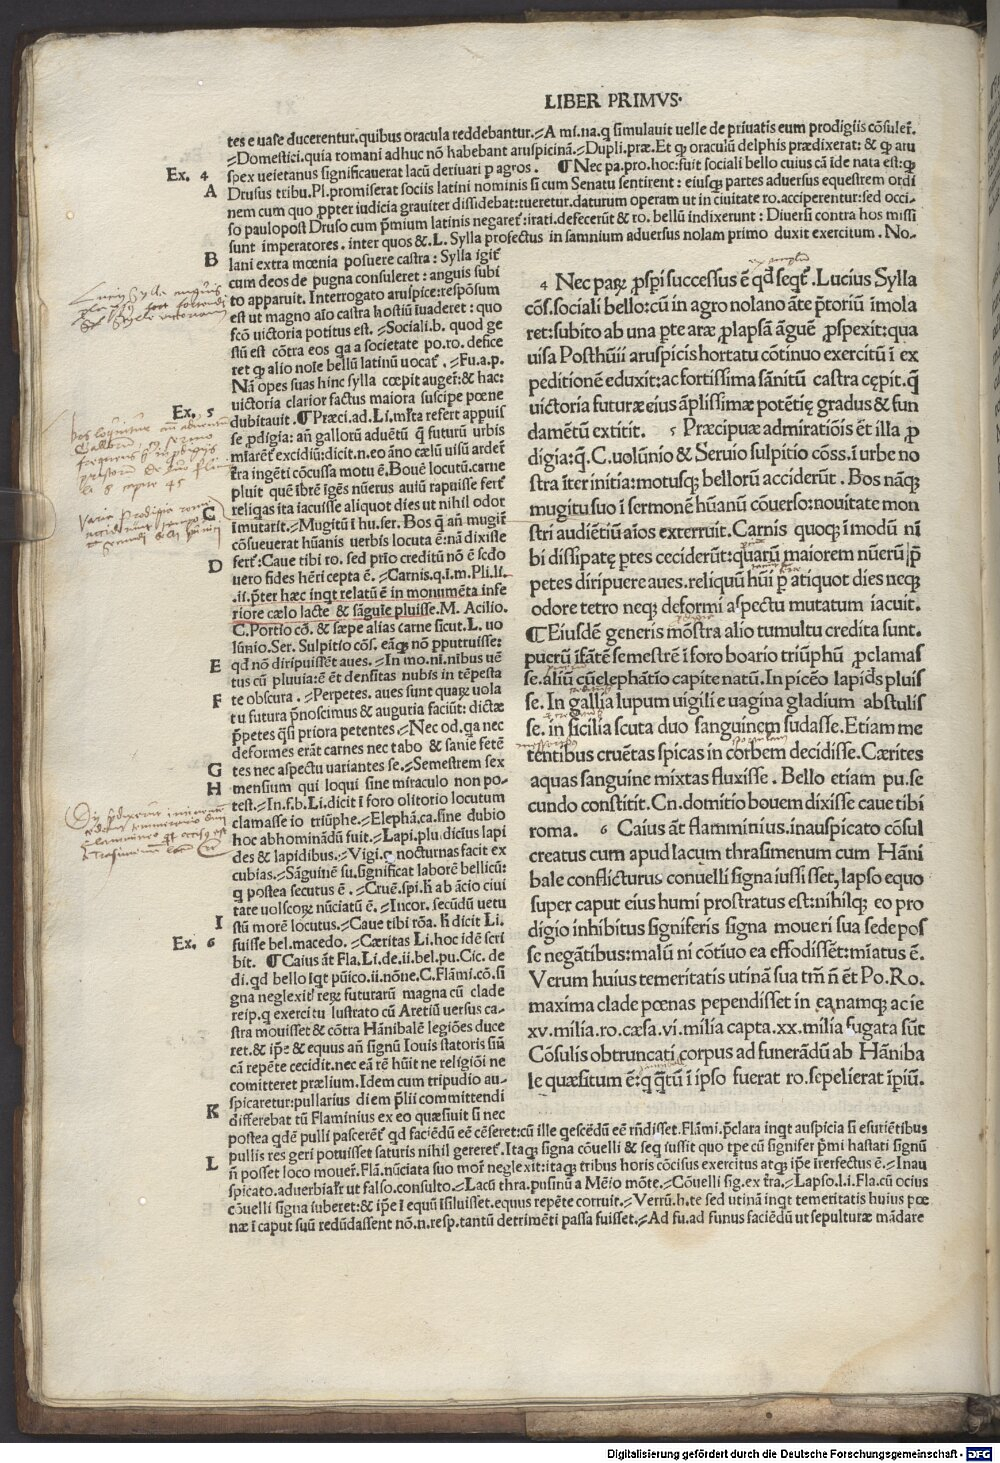 LIBER PRIMVS·
tes e uase ducerentur.quibus oracula reddebantur.⸗A mi.na.ꝙ simulauit uelle de priuatis eum prodigiis cōsulerᷓ.
⸗Domestici.quia romani adhuc nō habebant aruspicinā.⸗Dupli.præ.Et ꝙ oraculū delphis prædixerat: & ꝙ aru
Ex. 4
spex ueietanus significauerat lacū deriuari p agros. ¶Nec pa.pro.hoc:fuit sociali bello cuius cā īde nata est:ꝙ
A
Drusus tribu.Pl.promiserat sociis latini nominis si cum Senatu sentirent: eiusqꝫ partes aduersus equestrem ordi
nem cum quo ꝓpter iudicia grauiter dissidebat:tueretur.daturum operam ut in ciuitate ro.acciperentur:sed occi⸗
so paulopost Druso cum p̄mium latinis negaret᷑:irati.defecerūt & ro. bellū indixerunt: Diuersi contra hos missi
sunt imperatores. inter quos &.L. Sylla profectus in samnium aduersus nolam primo duxit exercitum. No⸗
B
lani extra mœnia posuere castra: Sylla igit᷑
cum deos de pugna consuleret: anguis subi
to apparuit. Interrogato aruspice:respōsum
est ut magno aīo castra hostiū īuaderet: quo
fcō uictoria potitus est. ⸗Sociali.b. quod ge
stū est cōtra eos qa a societate po.ro. defice
ret ꝙ alio noīe bellū latinū uocat᷑. ⸗Fu.a.p.
Nā opes suas hinc sylla cœpit auger᷑:& hac:
uictoria clarior factus maiora suscipe pœne
Ex. 5
dubitauit. ¶Præci.ad.Li.mīta refert appuis
se ꝓdigia: an̄ gallorū aduētū ꝙ futurū urbis
miāret᷑ excidiū:dicit.n.eo āno cælū uisū arder᷑
tra ingēti cōcussa motu ē.Bouē locutū.carne
pluit quē ībrē īgēs nūerus auiū rapuisse fert᷑
C
reliqas ita iacuisse aliquot dies ut nihil odor
īmutarit.⸗Mugitū ī hu.ser. Bos ꝙ an̄ mugir᷑
cōsueuerat hūanis uerbis locuta ē:nā dixisse
D
fert᷑:Caue tibi ro. sed prīo creditū nō ē sedo
uero fides hēri cepta ē. ⸗Carnis.q.ī.m.Pli.li.
.ii.p̄ter hæc inqt relatū ē in monumēta infe
riore cælo lacte & sāguīe pluisse.M. Acilio.
C.Portio cō. & sæpe alias carne sicut.L. uo
lūnio.Ser. Sulpitio cōs. eāqꝫ nō pputruisse:
E
qd nō diripuissēt aues. ⸗In mo.ni.nibus uē
tus cū pluuia:ē ēt densitas nubis in tēpesta
F
te obscura. ⸗Perpetes. aues sunt quaꝝ uola
tu futura p̄noscimus & auguria faciūt: dictæ
p̄petes q̄si priora petentes ⸗Nec od.qa nec
deformes erāt carnes nec tabo & sanie fetē
G
tes nec aspectu uariantes se.⸗Semestrem sex
H
mensium qui loqui sine miraculo non po⸗
test.⸗In.f.b.Li.dicit ī foro olitorio locutum
clamasse io triūphe.⸗Elephā.ca.sine dubio
hoc abhominādū fuit.⸗Lapi.plu.dicius lapi
des & lapidibus.⸗Vigi.e nocturnas facit ex
cubias.⸗Sāguinē su.significat laborē bellicū:
q postea secutus ē. ⸗Cruē.spi.h̄ ab ācio ciui
tate uolscoꝝ nūciatū ē. ⸗Incor. secūdū uetu
I
stū morē locutus.⸗Caue tibi rōa. h̄ dicit Li.
Ex. 6
fuisse bel.macedo. ⸗Cæritas Li.hoc idē scri
bit. ¶Caius āt Fla.Li.de.ii.bel.pu.Cic. de
di.qd bello īqt pūico.ii.nōne.C.Flāmi.cō.si
gna neglexit᷑ reꝝ futurarū magna cū clade
reip.q exercitu lustrato cū Aretiū uersus ca⸗
stra mouisset & cōtra Hānibalē legiōes duce
ret.& ip̄e & equus an̄ signū Iouis statoris sinā
cā repēte cecidit.nec eā rē hūit ne religiōi ne
comitteret prælium. Idem cum tripudio au⸗
spicaretur:pullarius diem p̄lii committendi
K
differebat tū Flaminius ex eo quæsiuit si nec
postea qdē pulli pascerēt᷑ qd faciēdū eē cēseret:cū ille qescēdū eē rn̄disset.Flāmi.p̄clara inqt auspicia si esuriētibus
pullis res geri potuisset saturis nihil gereret᷑.Itaqꝫ signa cōuelli & seq iussit quo tp̄e cū signifer p̄mi hastati signū
L
n̄ posset loco mouer᷑.Flā.nūciata suo mor᷑ neglexit:itaqꝫ tribus horis cōcisus exercitus atqꝫ ip̄e īterfectus ē.⸗Inau
spicato.aduerbiaḷr ut falso.consulto.⸗Lacū thra.pusinū a Mēio mōte.⸗Cōuelli sig.ex t̄ra.⸗Lapso.l.i.Fla.cū ocius
cōuelli signa iuberet:& ip̄e ī equū īsiluisset.equus repēte corruit.⸗Verrū.h.te sed utinā inqt temeritatis huius pœ
næ ī caput suū redūdassent nō.n.resp.tantū detrimēti passa fuisset.⸗Ad fu.ad funus faciēdū ut sepulturæ mādare
4 Nec paꝝ ꝓspi successus ē qd seqt᷑.Lucius Sylla
cōs.sociali bello:cū in agro nolano āte p̄toriū īmola
ret:subito ab una p̱te aræ ꝓlapsā āguē ꝓspexit:qua
uisa Posthūii aruspicis hortatu cōtinuo exercitū ī ex
peditionē eduxit:ac fortissima sānitū castra cępit.ꝙ
uictoria futuræ eius āplissimæ potētię gradus & fun
damētū extitit. 5 Præcipuæ admiratiōis ēt illa ꝓ
digia:q̄.C.uolūnio & Seruio sulpitio cōss.ī urbe no
stra īter initia:motusqꝫ bellorū acciderūt. Bos nāqꝫ
mugitu suo ī sermonē hūanū cōuerso:nouitate mon
stri audiētiū aīos exterruit.Carnis quoqꝫ ī modū nī
bi dissipatę p̱tes ceciderūt:quarū maiorem nūerū p̄
petes diripuere aues.reliquū hūi p̄ atiquot dies neqꝫ
odore tetro neqꝫ deformi aspectu mutatum iacuit.
¶Eiusdē generis mōstra alio tumultu credita sunt.
puerū īfātē semestrē ī foro boario triūphū ꝓclamas
se.aliū cū elephātio capite natū.In picēo lapides pluis
se.In gallia lupum uigili e uagina gladium abstulis
se.in sicilia scuta duo sanguinem sudasse.Etiam me
tentibus cruētas spicas in corbem decidisse.Cærites
aquas sanguine mixtas fluxisse. Bello etiam pu.se
cundo constitit.Cn.domitio bouem dixisse caue tibi
roma. 6 Caius āt flamminius.inauspicato cōsul
creatus cum apud lacum thrasimenum cum Hāni
bale conflicturus conuelli signa iussisset,lapso equo
super caput eius humi prostratus est:nihilqꝫ eo pro
digio inhibitus signiferis signa moueri sua sede pos
se negātibus:malū ni cōtīuo ea effodissēt:mīatus ē.
Verum huius temeritatis utinā sua tm̄ n̄ ēt Po.Ro.
maxima clade pœnas pependisset in ea namqꝫ acie
xv.milia.ro.cæsa.vi.milia capta.xx.milia fugata sūt
Cōsulis obtruncati corpus ad funerādū ab Hāniba
le quæsitum ē:q qᷓtū ī ipso fuerat ro.sepelierat īpiū.
Digitalisierung gefördert durch die Deutsche Forschungsgemeinschaft - DFG